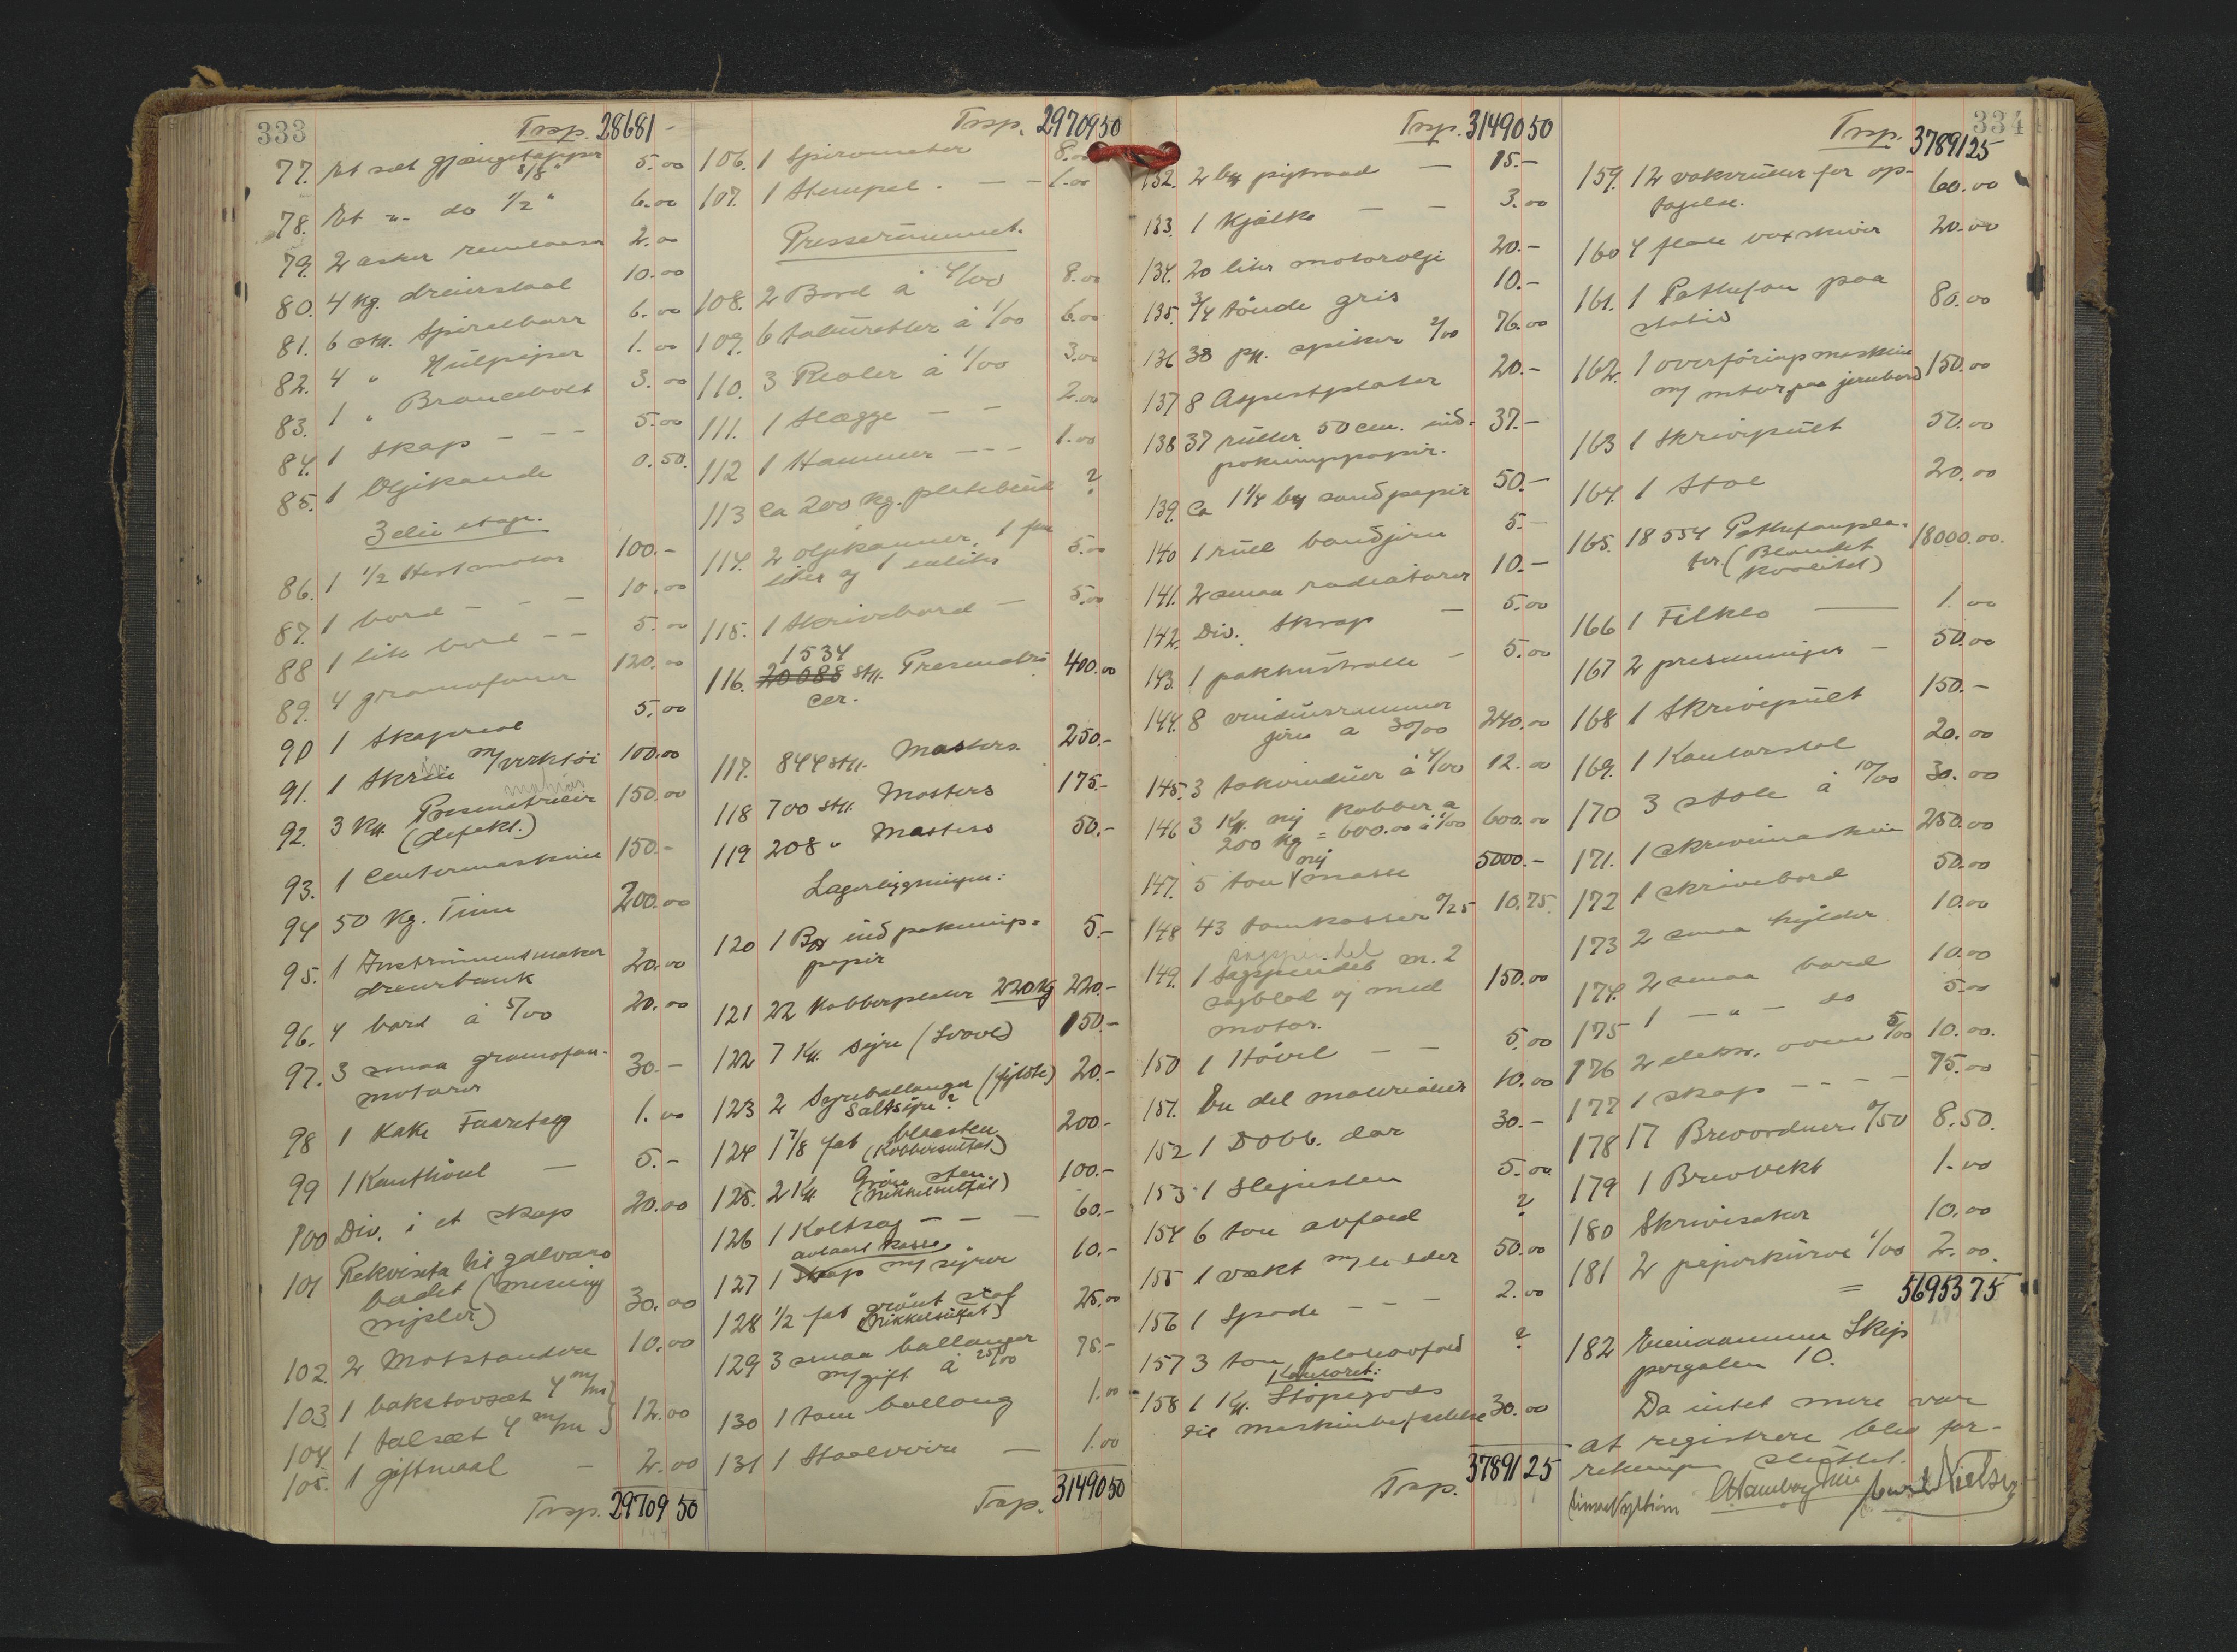 333
Trsp. 28681 -
77. Et sæt gjængetapper
5/8" 5.00
78. Et "- do 1/2" 6.00
79. 2 æsker remlaaser 2.00
80. 4 kg. dreierstaal 10.00
81. 6 stk. Spiralborr 6.00
82. 4 " Hulpiper 1.00
83. 1 " Broncebolt 3.00
84. 1 Skap - - - 5.00
85. 1 Oljekande 0.50.
3die etage.
86. 1 1/2 Hest motor 100.-
87. 1 bord - - - 10.00
88 1 lite bord - - 5.00
89. 4 gramofoner 120.00
90 1 Skapreol 5.00
91. 1 Skrin m/verktöi 100.00
92. 3 Kk. Presmatricer
(defekt.) 150.00
93. 1 Centermaskine 150.-
94 50 Kg. Tinn 200.00
95. 1 Instrumentmaker
dreierbænk 20.00
96. 4 bord á 5/00 20.00
97. 3 smaa gramofon-
motorer 30.-
98 1 Kake Faaretalg 1.00
99 1 Kanthövel - 5.-
100 Div. i et skap 20.00
101 Rekvisita til galvano
badet (messing
nipler) 30.00
102. 2 Motstandere 10.00
103. 1 bokstavsæt 4 m/m }
104 1 talsæt 4 m/m } 12.00
105. 1 giftmaal - 2.00
Trsp. 29709 50
Trsp. 29709 50
106. 1 Spirometer 8.00
107. 1 Stempel. - - 1.00
Presserummet.
108. 2 Bord á 4/00 8.00
109. 6 taburetter á 1/00 6.00
110. 3 Reoler á 1/00 3.00
111. 1 Slægge - - 2.00
112 1 Hammer - - - 1.00
113 Ca 200 kg. platebund ?
114. 2 oljekanner, 1 fem
liter og 1 enliter 5.00
115. 1 Skrivebord - 5.00
1534
116. 20088 stk. Presmatri-
cer. 400.00
117. 844 stk. Masters 250.-
118 700 stk. Masters 175.-
119 208 " Masters 50.-
Lagerbygningen:
120 1 Bx indpaknings=
papir 5.-
121 22 Kobberplater 220 Kg 220.-
122 7 Kk. Syre (Svovl) 150.-
123 2 Syreballonger (fyldte)
Saltsyre? 20.-
124 1 7/8 fat blaasten
(Kobbersulfat) 200.-
125. 2 Kk Grönn sten
(Nikkelsulfat) 100.-
126 1 Koltsag - - - 60.-
avlaast kasse
127 1 Skap m/ syrer 10.-
128 1/2 fat grönt stof
(Nikkelsulfat) 25.00
129 3 smaa ballonger
m/gift á 25/00 75.-
130 1 tom ballong 1.00
131 1 Staalvire - 1.00
Trsp. 31490 50
334
Trsp. 31490 50
132. 2 bx pigtraad - 15.-
133. 1 Kjälke - - 3.00
134. 20 liter motorolje 20.-
135. 3/4 tönde gris 10.-
136 38 pk. spiker 2/00 76.00
137 8 Aspestplater 20.-
138 37 ruller 50 cm. ind-
pakningspapir. 37.-
139. Ca 1 1/4 bx sandpapir 50.-
140 1 rull bandjern 5.-
141. 2 smaa radiatorer 10.-
142. Div. Skrap - 5.00
143. 1 pakhustralle - 5.00
144. 8 vindusrammer
jern a 30/00 240.00
145. 3 takvinduer á 4/00 12.00
146 3 Kk. ny Kobber a
200 Kg = 600.00 á 1/00 600.00
147. 5 ton ny masse 5000.-
148 43 tomkasser 0/25 10.75.
sagspindel
149. 1 Sagspindel m. 2
sagblad og med
motor. 150.00
150 1 Hövel - - 5.00
151. En del materialier 10.00
152 1 Dobb. dör 30.-
153. 1 Slipesten 5.00
154 6 ton avfald ?
155 1 vekt m/ lodder 50.00
156 1 Spade - - - 2.00
157 3 ton plateavfald ?
Kontoret:
158 1 Kk. Stöpegods
til maskinbefæstelse 30.00
Trsp. 37891 25
Trsp. 37891 25
159. 12 voksruller for op-
tagelse. 60.00
160 4 flate voxskiver 20.00
161. 1 Pathefon paa
stativ 80.00
162. 1 overföringsmaskine
m/ motor paa jernbord 150.00
163 1 Skrivepult 50.00
164. 1 Stol 20.00
165. 18554 Pathefonpla-
ter. (Blandet
kvalitet) 18000.00.
166 1 Filklo - 1.00
167 2 presenninger - 50.00
168 1 Skrivepult 150.-
169. 1 Kontorstol 20.00
170 3 stole á 10/00 30.00
171. 1 skrivemaskin 250.00
172 1 skrivebord 50.00
173 2 smaa hylder 10.00
174. 2 smaa bord 10.00
175 1 - " - do 5.00
176 2 elektr. ovne 5/00 10.00.
177 1 skap - - - - 75.00
178 17 Brevordnere 0/50 8.50.
179 1 Brevvekt 1.00
180 Skrivesaker 10.00
181 2 papirkurve 1/00 2.00.
= 56953 75
182 Eiendommen Skip
pergaten 10.
Da intet mere var
at registrere blev for-
retningen sluttet.